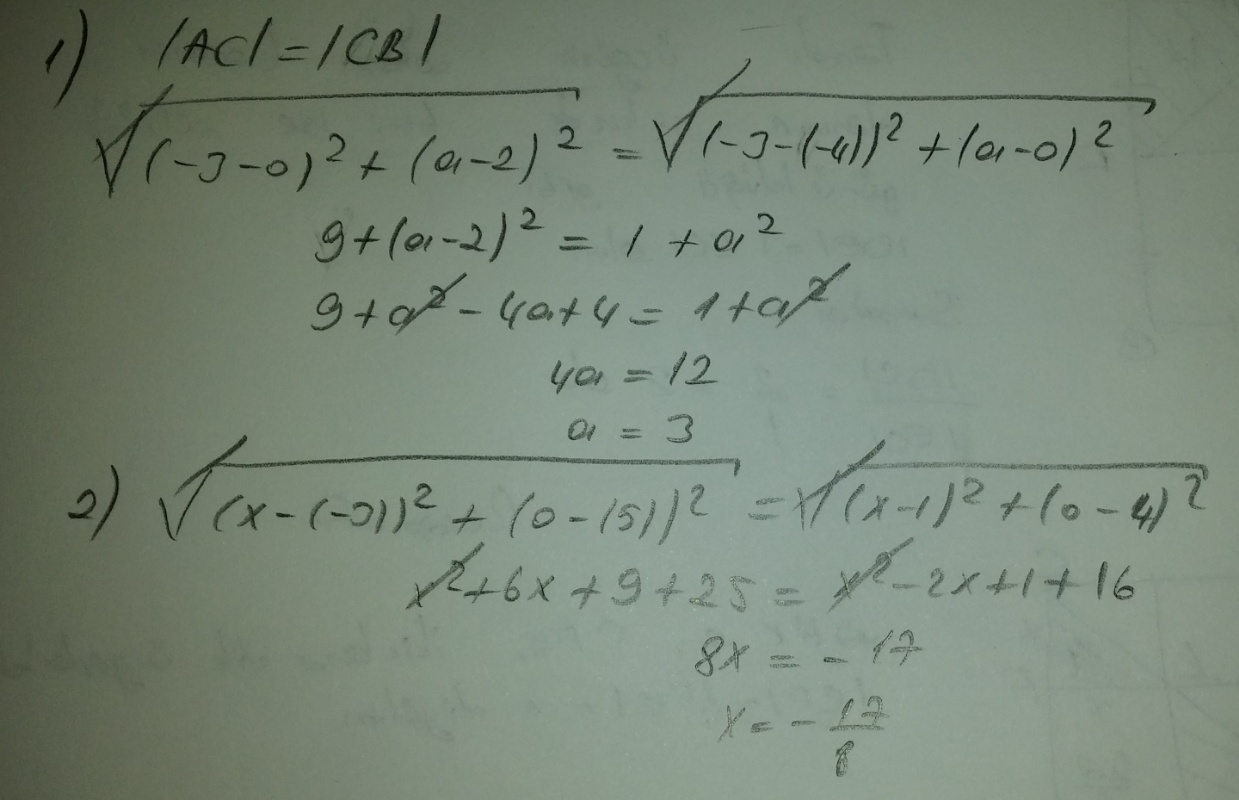 1) |AC| = |CB|
√(-3-0)² + (a-2)² = √(-3-(-4))² + (a-0)²
9+(a-2)² = 1 + a²
9+a² - 4a+4 = 1+a²
4a = 12
a = 3
2) √(x-(-3))² + (0-(5))² = √(x-1)² + (0-4)²
x²+6x+9+25 = x²-2x+1+16
8x = -17
x = -17/8